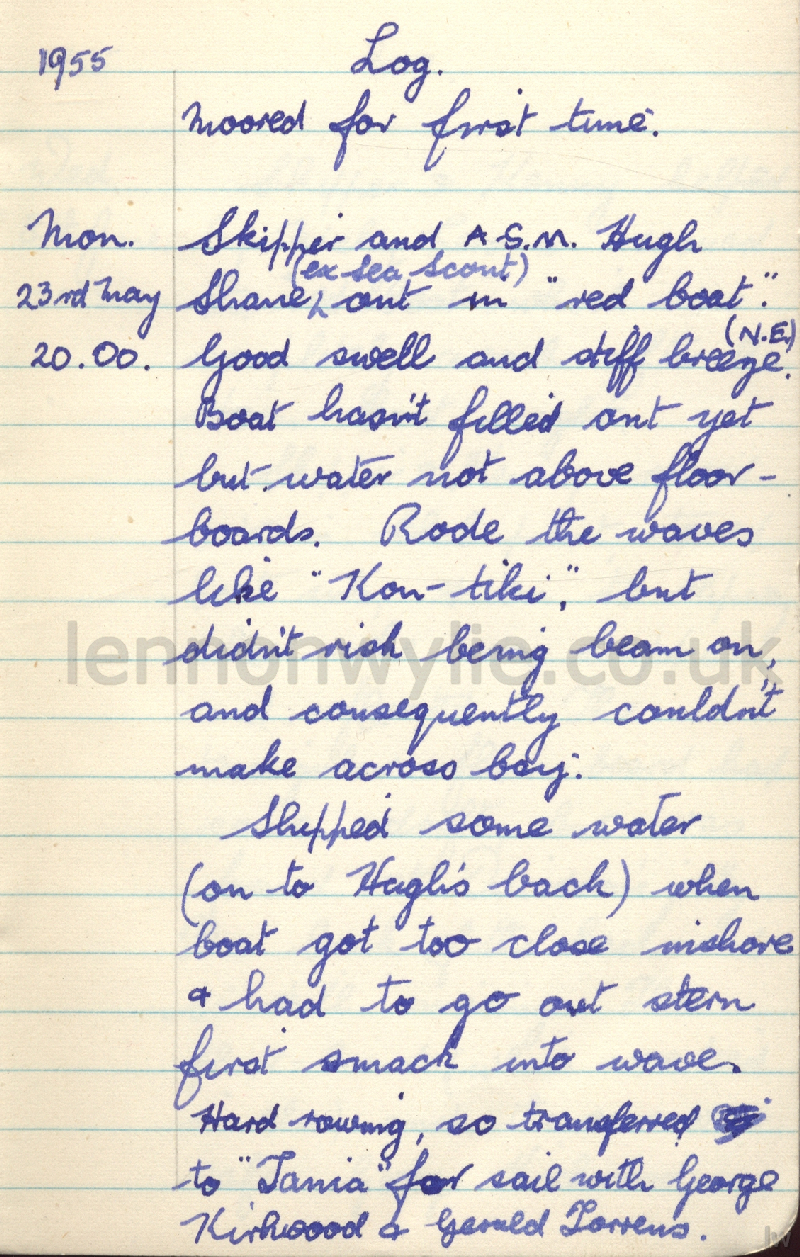 1955 Log.
Moored for first time.
Mon. Skipper and A.S.M. Hugh
(ex Sea Scout)
23rd May Shane, out in "red boat".
(N.E.)
20.00. Good swell and stiff breeze.
Boat hasn't filled out yet
but water not above floor-
boards. Rode the waves
like "Kon-tiki", but
didn't risk being beam on,
and consequently couldn't
make across bay.
Shipped some water
(on to Hugh's back) when
boat got too close inshore
& had to go out stern
first smack into wave.
Hard rowing, so transferred
to "Tania" for sail with George
Kirkwood & Gerald Torrens.
lennonwylie.co.uk
lw